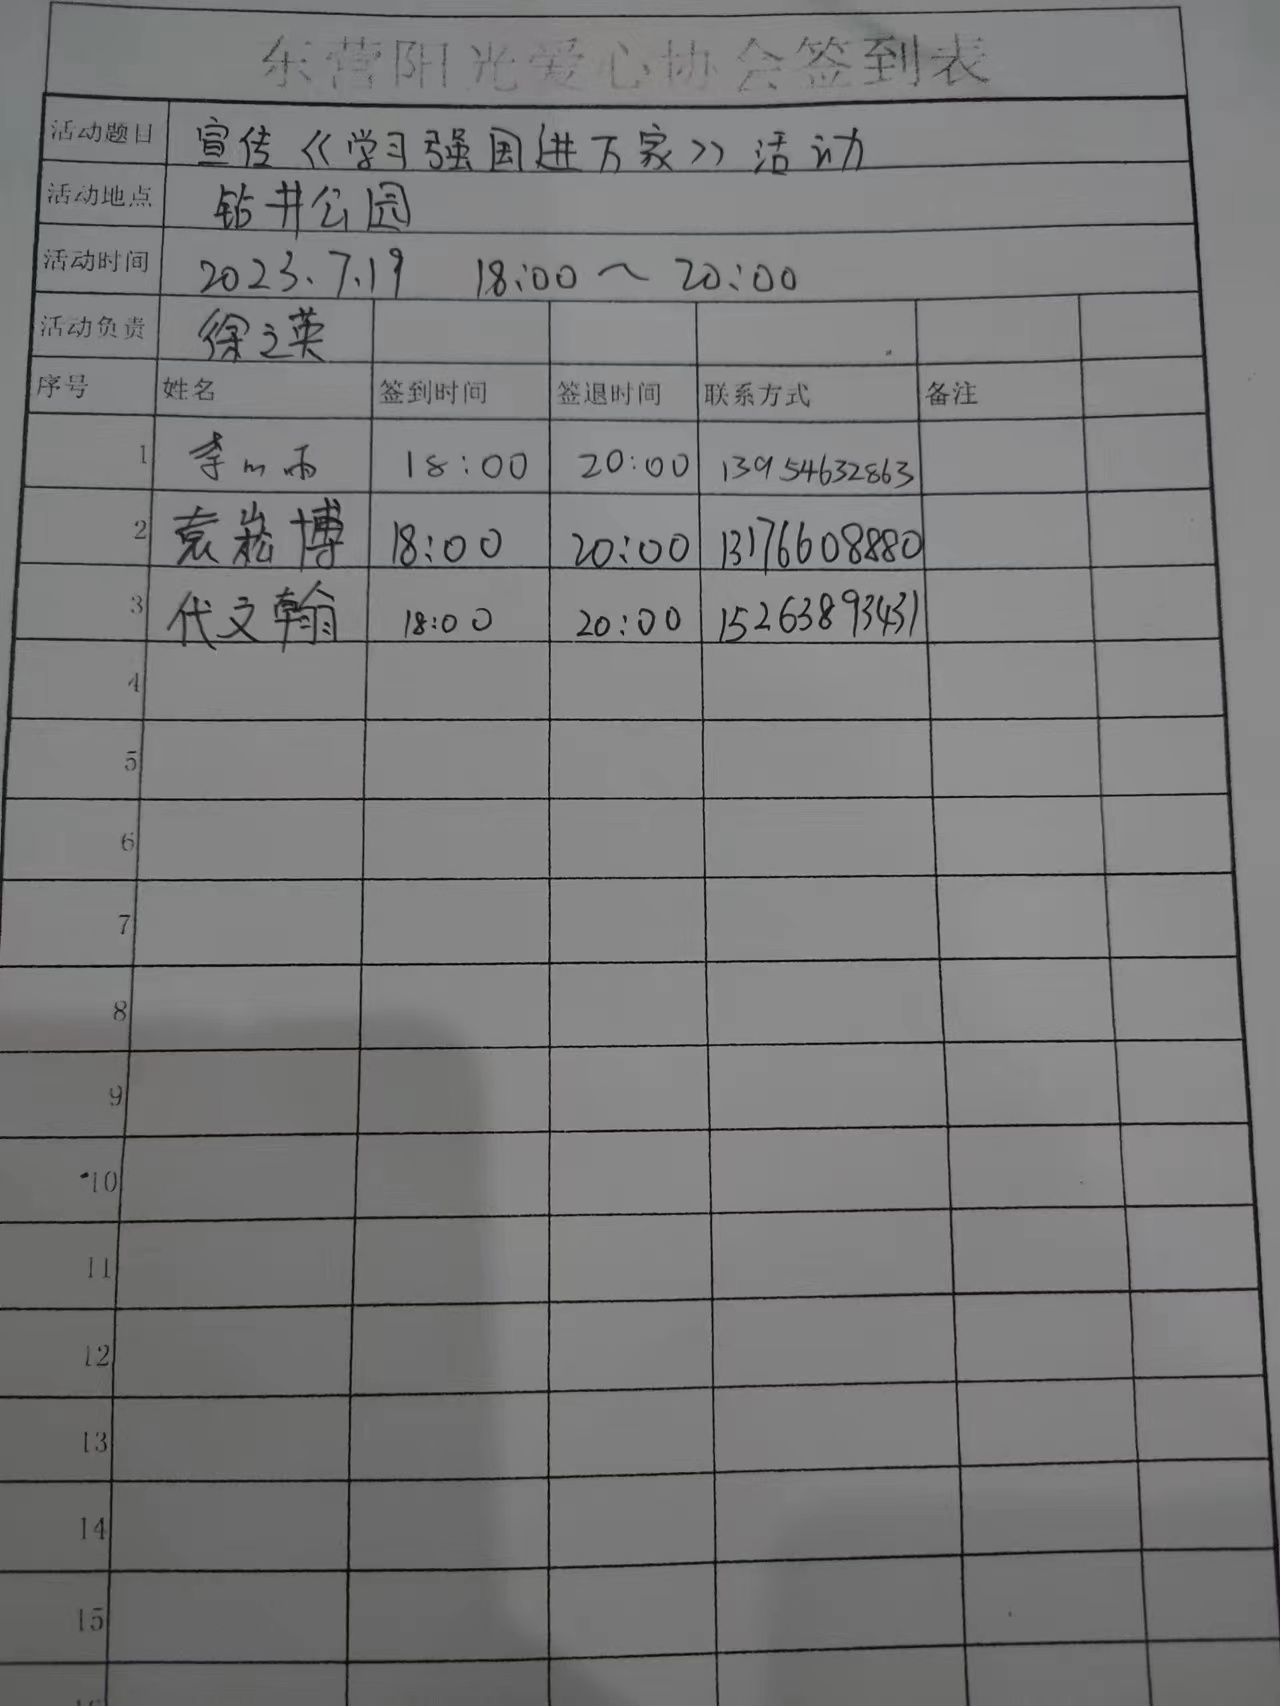 东营阳光爱心协会签到表
活动题目 宣传《学习强国进万家》活动
活动地点 钻井公园
活动时间 2023.7.19 18:00～20:00
活动负责 徐立英
序号 姓名 签到时间 签退时间 联系方式 备注
1 李 雨 18:00 20:00 13954632863
2 袁崧博 18:00 20:00 13176608880
3 代文翰 18:00 20:00 15263893431
4
5
6
7
8
9
10
11
12
13
14
15